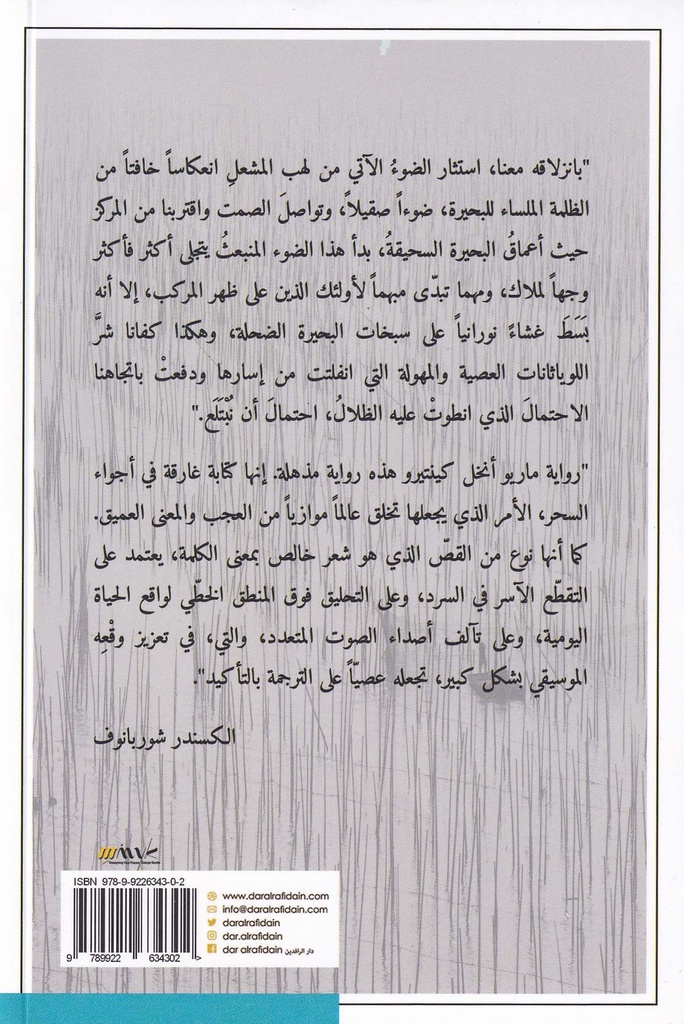 "بانزلاقه معنا، استثار الضوءُ الآتي من لهب المشعلِ انعكاساً خافتاً من
الظلمة الملساء للبحيرة، ضوءاً صقيلاً، وتواصلَ الصمت واقتربنا من المركز
حيث أعماقُ البحيرة السحيقةُ، بدأ هذا الضوء المنبعثُ يتجلى أكثر فأكثر
وجهاً لملاك، ومهما تبدّى مبهماً لأولئك الذين على ظهر المركب، إلا أنه
بَسَطَ غشاءً نورانياً على سبخات البحيرة الضحلة، وهكذا كفانا شرَّ
اللوياثانات العصية والمهولة التي انفلتت من إسارها ودفعتْ باتجاهنا
الاحتمالَ الذي انطوتْ عليه الظلالُ، احتمالَ أن نُبْتَلَع."
"رواية ماريو أنخل كينتيرو هذه رواية مذهلة. إنها كتابة غارقة في أجواء
السحر، الأمر الذي يجعلها تخلق عالماً موازياً من العجب والمعنى العميق.
كما أنها نوع من القصّ الذي هو شعر خالص بمعنى الكلمة، يعتمد على
التقطّع الآسر في السرد، وعلى التحليق فوق المنطق الخطّي لواقع الحياة
اليومية، وعلى تآلف أصداء الصوت المتعدد، والتي، في تعزيز وقْعِه
الموسيقي بشكل كبير، تجعله عصيّاً على الترجمة بالتأكيد".
الكسندر شوربانوف
ISBN 978-9-9226343-0-2
9 789922 634302 >
www.daralrafidain.com
info@daralrafidain.com
daralrafidain
dar.alrafidain
dar alrafidain دار الرافدين